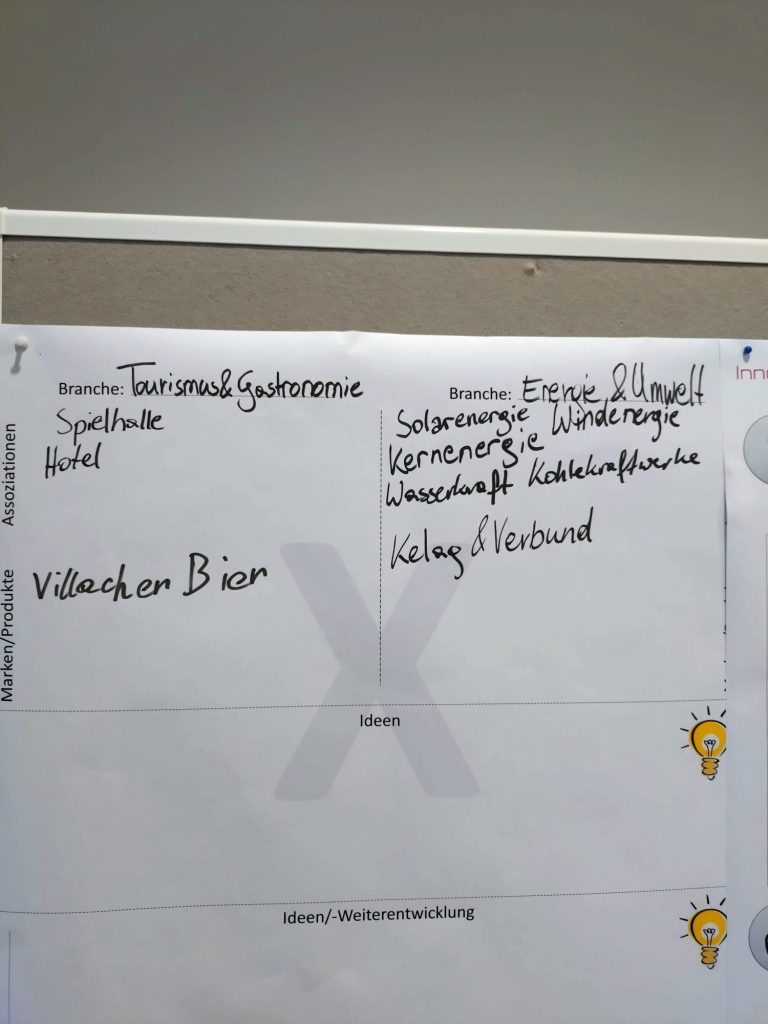 Branche: Tourismus & Gastronomie
Spielhalle
Hotel
Assoziationen
Villacher Bier
Marken/Produkte
Branche: Energie & Umwelt
Solarenergie Windenergie
Kernenergie
Wasserkraft Kohlekraftwerke
Kelag & Verbund
X
Ideen
Ideen/-Weiterentwicklung